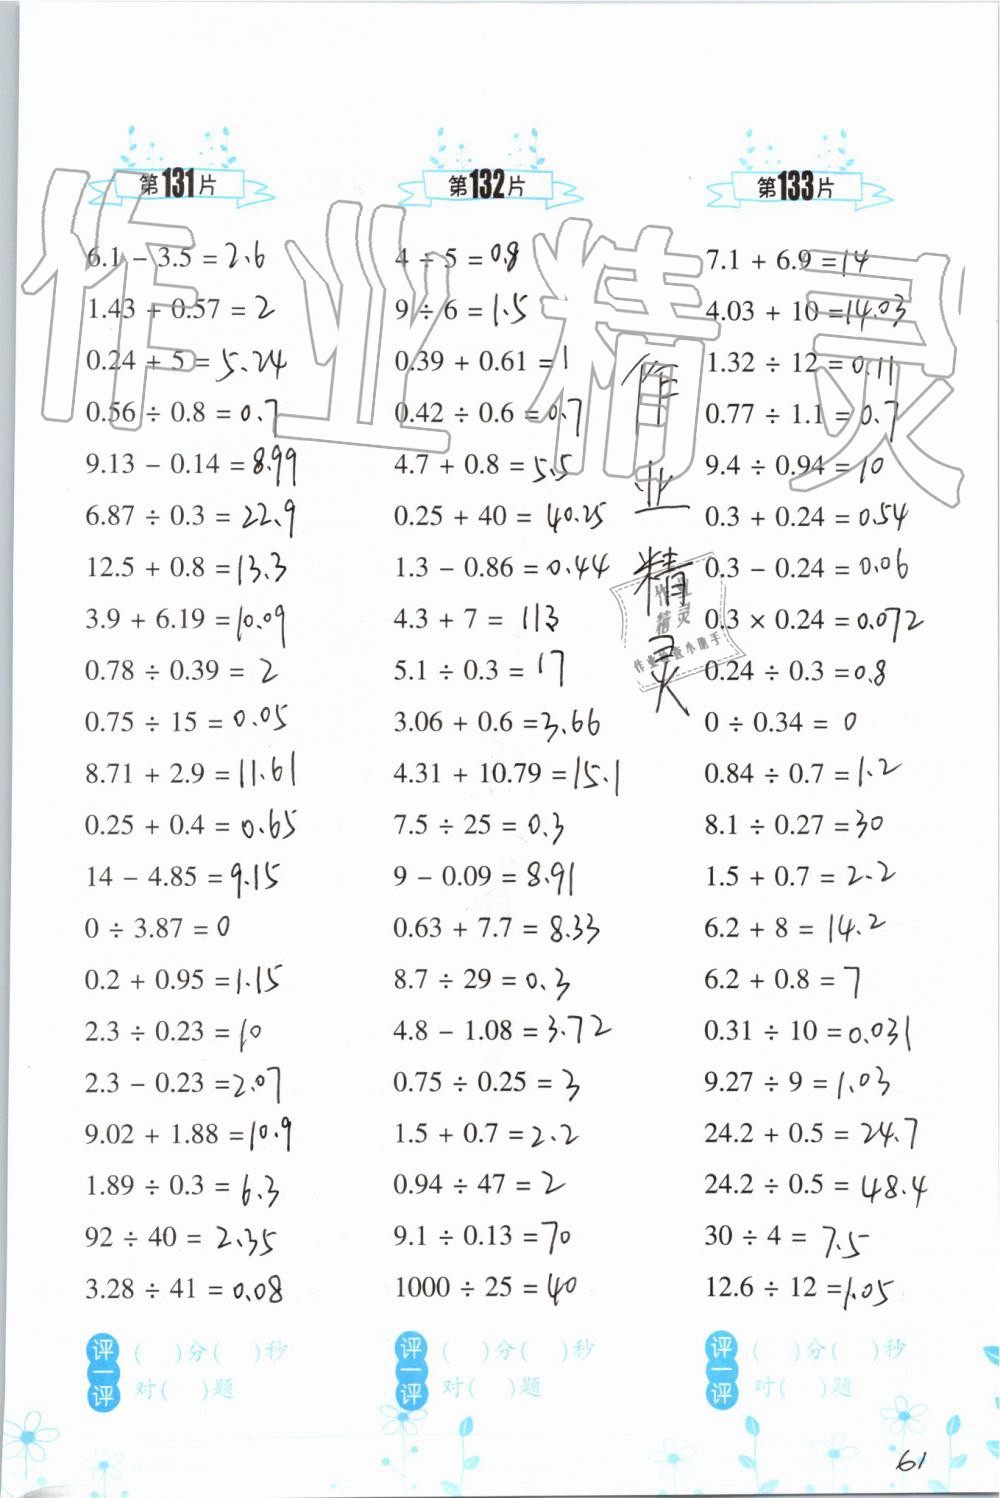 第131片
6.1 − 3.5 = 2.6
1.43 + 0.57 = 2
0.24 + 5 = 5.24
0.56 ÷ 0.8 = 0.7
9.13 − 0.14 = 8.99
6.87 ÷ 0.3 = 22.9
12.5 + 0.8 = 13.3
3.9 + 6.19 = 10.09
0.78 ÷ 0.39 = 2
0.75 ÷ 15 = 0.05
8.71 + 2.9 = 11.61
0.25 + 0.4 = 0.65
14 − 4.85 = 9.15
0 ÷ 3.87 = 0
0.2 + 0.95 = 1.15
2.3 ÷ 0.23 = 10
2.3 − 0.23 = 2.07
9.02 + 1.88 = 10.9
1.89 ÷ 0.3 = 6.3
92 ÷ 40 = 2.35
3.28 ÷ 41 = 0.08
评一评
( )分( )秒
对( )题
第132片
4 ÷ 5 = 0.8
9 ÷ 6 = 1.5
0.39 + 0.61 = 1
0.42 ÷ 0.6 = 0.7
4.7 + 0.8 = 5.5
0.25 + 40 = 40.25
1.3 − 0.86 = 0.44
4.3 + 7 = 113
5.1 ÷ 0.3 = 17
3.06 + 0.6 = 3.66
4.31 + 10.79 = 15.1
7.5 ÷ 25 = 0.3
9 − 0.09 = 8.91
0.63 + 7.7 = 8.33
8.7 ÷ 29 = 0.3
4.8 − 1.08 = 3.72
0.75 ÷ 0.25 = 3
1.5 + 0.7 = 2.2
0.94 ÷ 47 = 2
9.1 ÷ 0.13 = 70
1000 ÷ 25 = 40
评一评
( )分( )秒
对( )题
第133片
7.1 + 6.9 = 14
4.03 + 10 = 14.03
1.32 ÷ 12 = 0.11
0.77 ÷ 1.1 = 0.7
9.4 ÷ 0.94 = 10
0.3 + 0.24 = 0.54
0.3 − 0.24 = 0.06
0.3 × 0.24 = 0.072
0.24 ÷ 0.3 = 0.8
0 ÷ 0.34 = 0
0.84 ÷ 0.7 = 1.2
8.1 ÷ 0.27 = 30
1.5 + 0.7 = 2.2
6.2 + 8 = 14.2
6.2 + 0.8 = 7
0.31 ÷ 10 = 0.031
9.27 ÷ 9 = 1.03
24.2 + 0.5 = 24.7
24.2 ÷ 0.5 = 48.4
30 ÷ 4 = 7.5
12.6 ÷ 12 = 1.05
评一评
( )分( )秒
对( )题
作业精灵
作业精灵
作业
精灵
作业检查小助手
61